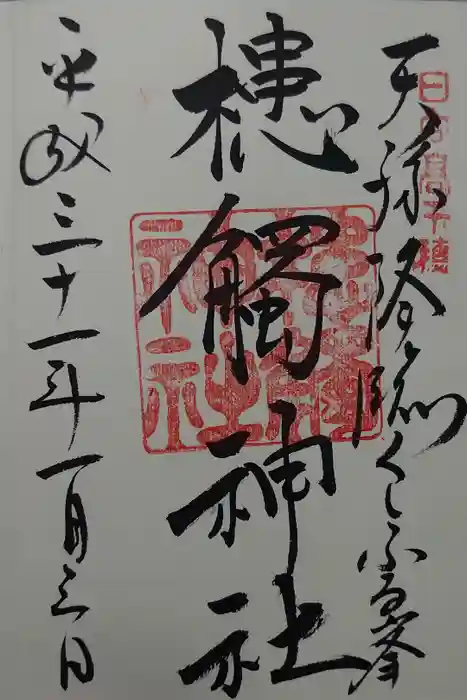 天孫降臨くしふる峯
日向高千穂
槵觸神社
平成三十一年一月三日